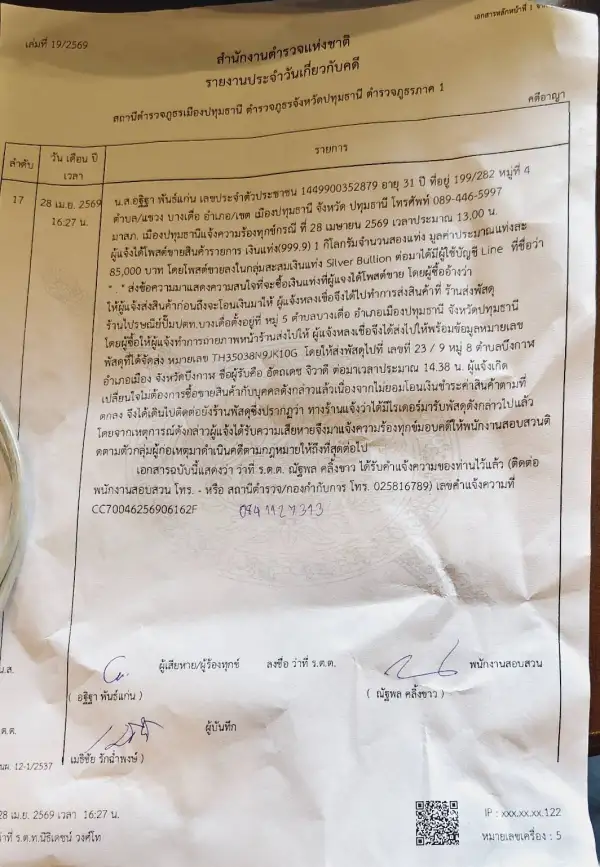 เอกสารหลักหน้าที่ 1
เล่มที่ 19/2569
สำนักงานตำรวจแห่งชาติ
รายงานประจำวันเกี่ยวกับคดี
สถานีตำรวจภูธรเมืองปทุมธานี ตำรวจภูธรจังหวัดปทุมธานี ตำรวจภูธรภาค 1
คดีอาญา
ลำดับ
วัน เดือน ปี
เวลา
รายการ
17
28 เม.ย. 2569
16:27 น.
น.ส.อฐิฐา พันธ์แก่น เลขประจำตัวประชาชน 1449900352879 อายุ 31 ปี ที่อยู่ 199/282 หมู่ที่ 4
ตำบล/แขวง บางเดื่อ อำเภอ/เขต เมืองปทุมธานี จังหวัด ปทุมธานี โทรศัพท์ 089-446-5997
มาสภ. เมืองปทุมธานีแจ้งความร้องทุกข์กรณี ที่ 28 เมษายน 2569 เวลาประมาณ 13.00 น.
ผู้แจ้งได้โพสต์ขายสินค้ารายการ เงินแท่ง(999.9) 1 กิโลกรัมจำนวนสองแท่ง มูลค่าประมาณแท่งละ
85,000 บาท โดยโพสต์ขายลงในกลุ่มสะสมเงินแท่ง Silver Bullion ต่อมาได้มีผู้ใช้บัญชี Line ที่ชื่อว่า
" . " ส่งข้อความมาแสดงความสนใจที่จะซื้อเงินแท่งที่ผู้แจงได้โพสต์ขาย โดยผู้ซื้ออ้างว่า
ให้ผู้แจ้งส่งสินค้าก่อนถึงจะโอนเงินมาให้ ผู้แจ้งหลงเชื่อจึงได้ไปทำการส่งสินค้าที่ ร้านส่งพัสดุ
ร้านไปรษณีย์ปั๊มปตท.บางเดื่อตั้งอยู่ที่ หมู่ 5 ตำบลบางเดื่อ อำเภอเมืองปทุมธานี จังหวัดปทุมธานี
โดยผู้ซื้อให้ผู้แจ้งทำการถ่ายภาพหน้าร้านส่งไปให้ ผู้แจ้งหลงเชื่อจึงได้ส่งไปให้พร้อมข้อมูลหมายเลข
พัสดุที่ได้จัดส่ง หมายเลข TH35038N9JK10G โดยให้ส่งพัสดุไปที่ เลขที่ 23 / 9 หมู่ 8 ตำบลบึงกาฬ
อำเภอเมือง จังหวัดบึงกาฬ ชื่อผู้รับคือ อัตถเดช จิวาดี ต่อมาเวลาประมาณ 14.38 น. ผู้แจ้งเกิด
เปลี่ยนใจไม่ต้องการซื้อขายสินค้ากับบุคคลดังกล่าวแล้วเนื่องจากไม่ยอมโอนเงินชำระค่าสินค้าตามที่
ตกลง จึงได้เดินไปติดต่อยังร้านพัสดุซึ่งปรากฏว่า ทางร้านแจ้งว่าได้มีไรเดอร์มารับพัสดุดังกล่าวไปแล้ว
โดยจากเหตุการณ์ดังกล่าวผู้แจ้งได้รับความเสียหายจึงมาแจ้งความร้องทุกข์มอบคดีให้พนักงานสอบสวนติ
ดตามตัวกลุ่มผู้ก่อเหตุมาดำเนินคดีตามกฎหมายให้ถึงที่สุดต่อไป
เอกสารฉบับนี้แสดงว่า ว่าที่ ร.ต.ต. ณัฐพล คลิ้งขาว ได้รับคำแจ้งความของท่านไว้แล้ว (ติดต่อ
พนักงานสอบสวน โทร. - หรือ สถานีตำรวจ/กองกำกับการ โทร. 025816789) เลขคำแจ้งความที่
CC70046256906162F 0841127313
น.ส. ผู้เสียหาย/ผู้ร้องทุกข์ ลงชื่อ ว่าที่ ร.ต.ต. พนักงานสอบสวน
( อฐิฐา พันธ์แก่น ) ( ณัฐพล คลิ้งขาว )
ต.ต. ผู้บันทึก
เมธิชัย รักฉ่ำพงษ์ )
12-1/2537
28 เม.ย. 2569 เวลา 16:27 น.
ร.ต.ท.นิธิเดชน์ วงศ์โท
IP : xxx.xx.xx.122
หมายเลขเครื่อง : 5